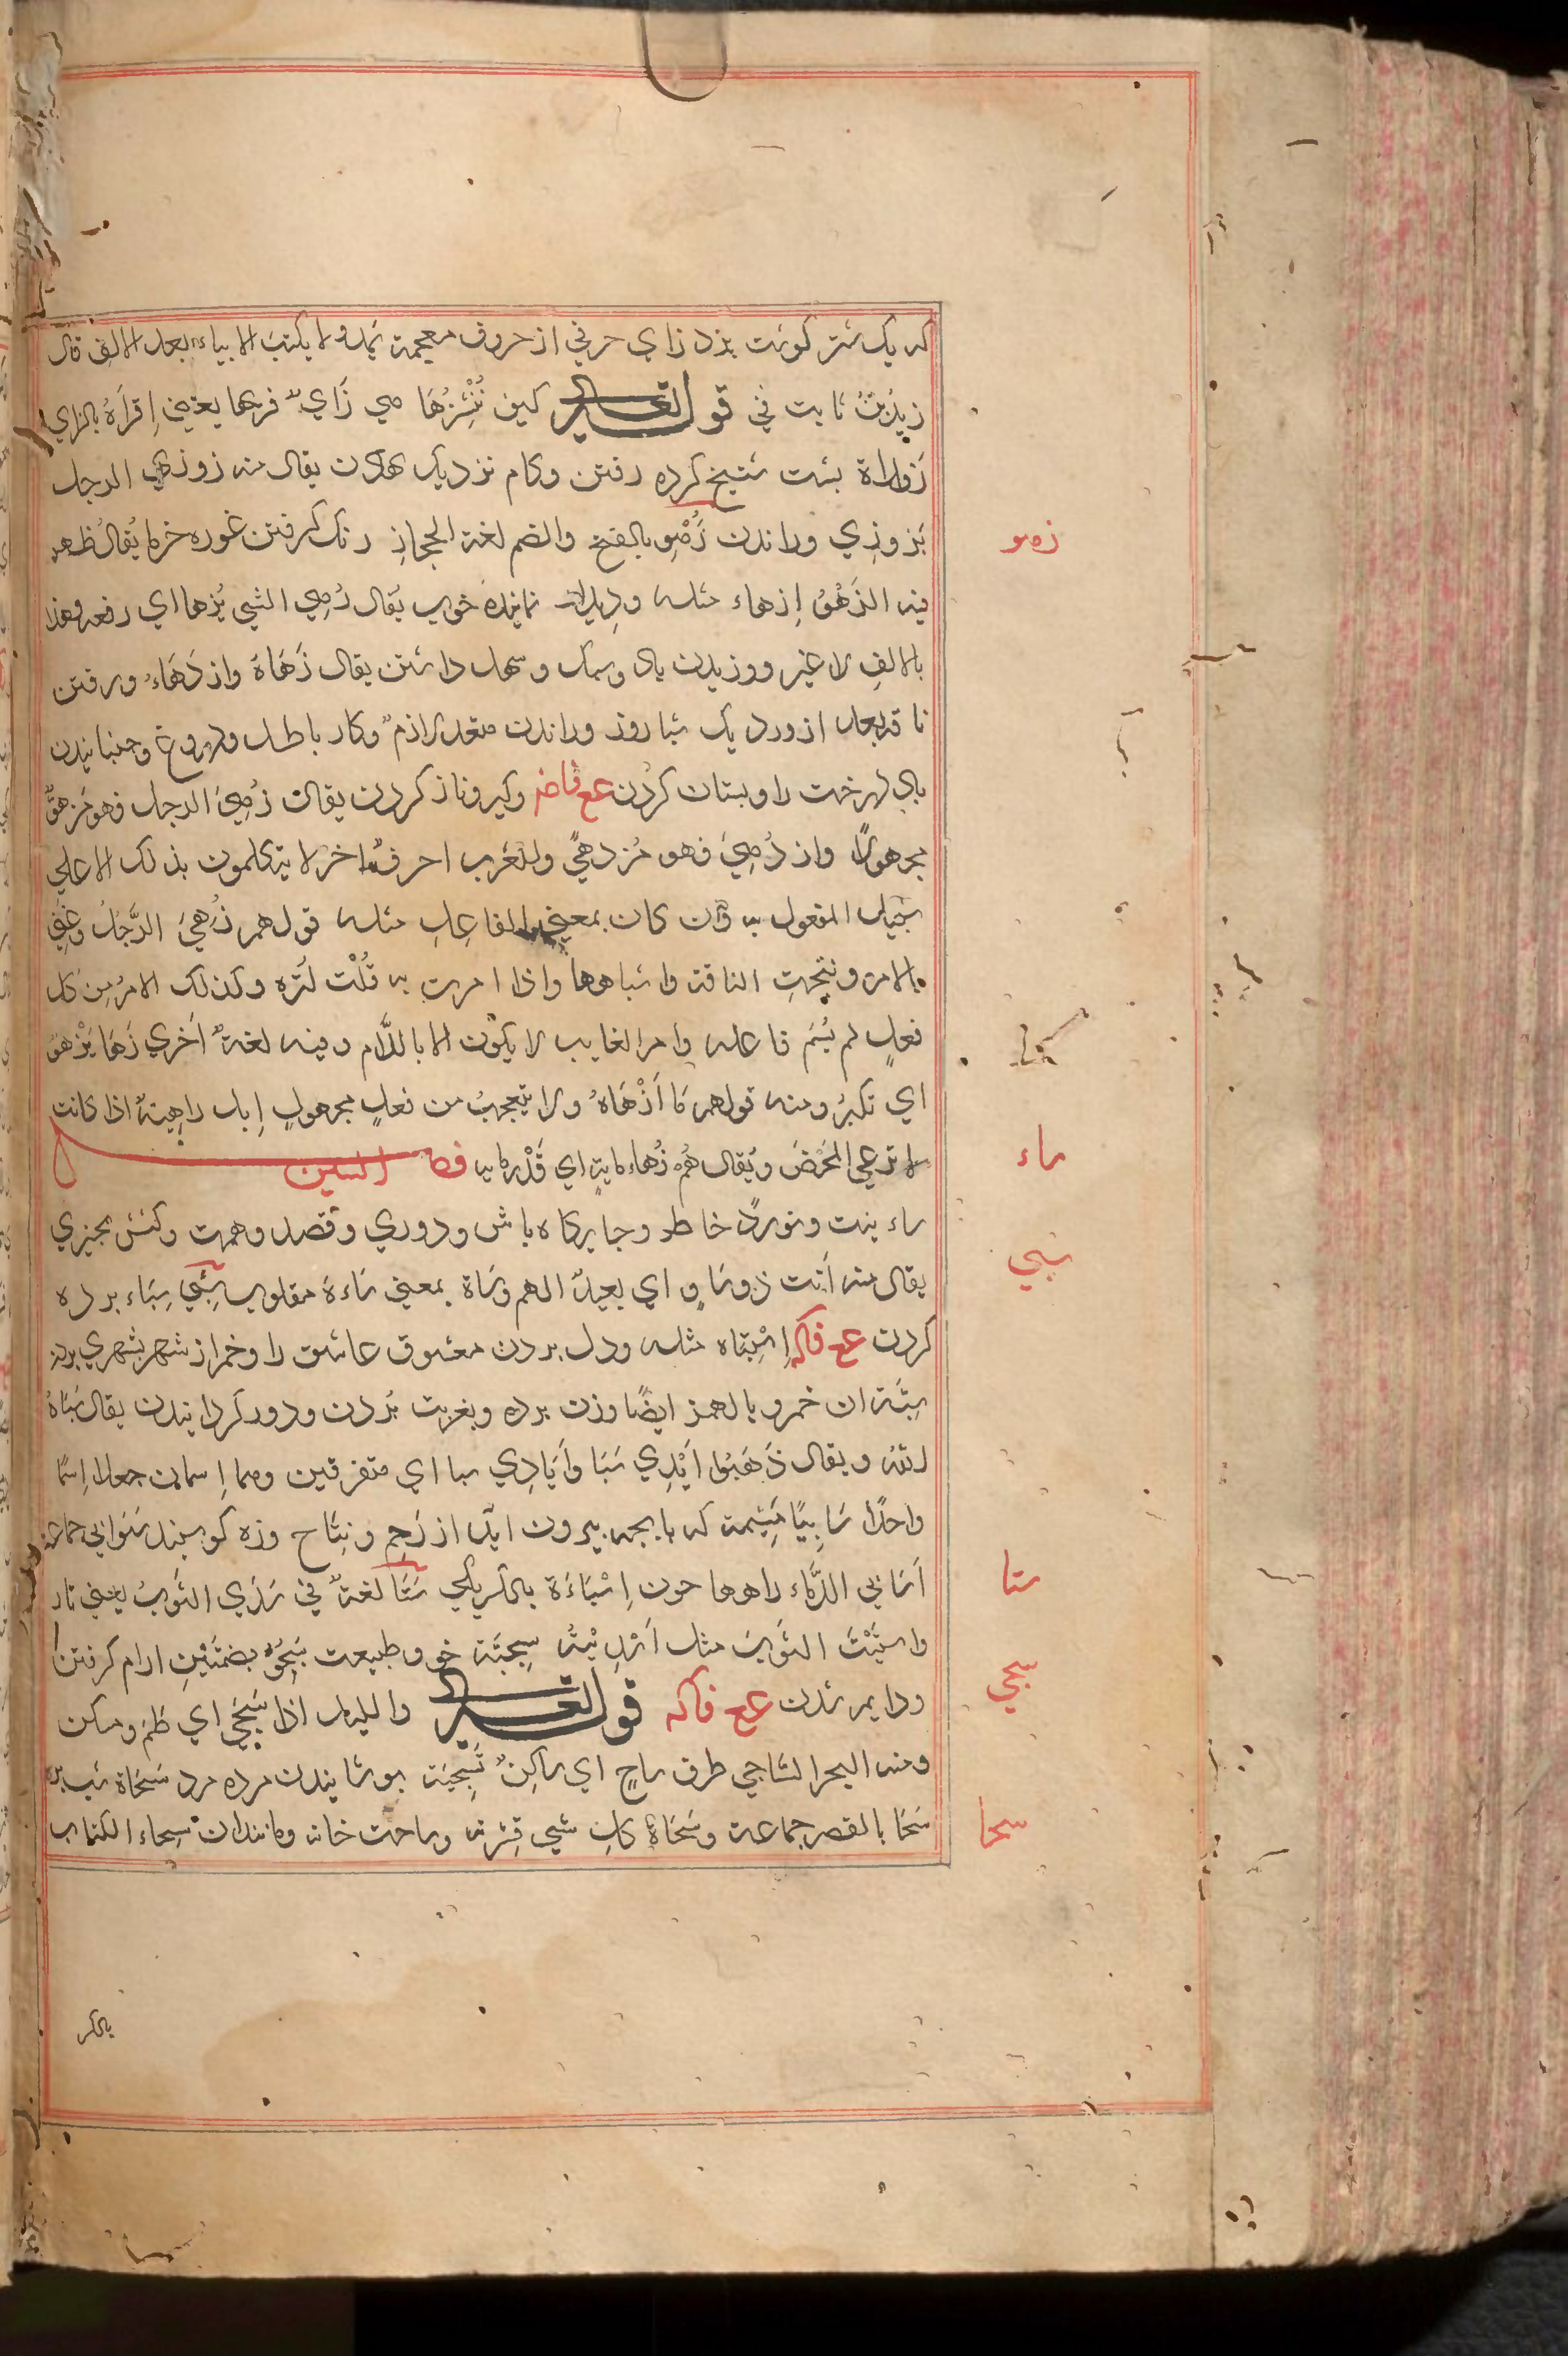 که یک شتر کوشت بزد زاي حرفي از حروف معجمة یمد ولا یکتب الا بیاء بعد الالف قال
زید بن ثابت في قوله تعالى کیف نُنْشِزُهَا هي زَايٌ فزیها یعني اِقرَاهُ بالزاي
زَوزاة بشت شیخ کرده رفتن وکام نزدیک نهادن یقال منه زوزي الرجل
یُزوزِي وراندن زُهْو بالفتح والضم لغة الحجاز رنک کرفتن غوره خرما یُقالُ ظهر
فیه الزَهْوُ اِزهاء مثله ودیدار نماینده خوب یُقال زُهِي الشي یُزها اي رفعه وهذا
بالالفِ لا غیر ووزیدن باد وسبک وسهل داشتن یقال زَهَاهُ وازدَهَاءُ ورفتن
ناقه بعد از ورد یک شباروز وراندن متعد لازمٌ وکار باطل ودروغ وجنبانیدن
باد درخت را وبستان کردن عع فاضـ وکبر وناز کردن یقال زُهِيَ الرجل فهو مزهوٌّ
مجهولاً وازدُهِيَ فهو مُزدهيً وللعَرب احرفٌ اخر لا یتکلمون بذلک الا علي
سَبیل المفعول به واِن کان بمعني الفاعِلِ مثله قولهم زُهِيَ الرَّجلُ وعُنِيَ
بالامر ونتجتِ الناقة واشباهها واذا امرت به قُلْت لتُزه وکذلک الامرُ مِن کل
فعلٍ لم یُسَم فاعله وامر الغایب لا یکون الا باللّام وفیه لغةٌ اُخري زَهَا یَزْهو
اي تکبرَ ومنه قولهم مَا اَزْهَاهُ ولا یتعجبُ من فعلٍ مجهولٍ اِبل زاهِیةٌ اذا کانت
لا ترعي الحَمْضَ ویُقال هُمْ زُهاء مایةٍ اي قَدْر مایه فصل السین
ساء نیت ونورد خاطر وجایکاه باش ودوري وقصد وهمت وکشش بجیزي
یقال منه اَنت ذو ساوٍ اي بعیدُ الهم وسَاة بمعني سَاءَهُ مقلوب سَبْي سِبَاء برده
کردن عع فاکه اِسْتِبَاء مثله ودل بردن معشوق عاشق را وخمر از شهر بشهري بردن
سَبیة ان خمر وبالهمز ایضًا وزن برده وبغربت بُردن ودور کردانیدن یقال سَبَاهُ
الله ویقال ذَهَبُوا اَیْدِي سَبَا وَاَیَادِي سبا اي متفرقین وهما اِسمان جعلا اِسمًا
واحدًا سَابِیَا مَشِیمة که با بجه بیرون اید از رَحِم ونِتَاج وزه کوسبند سَوابي جماعة
اَسَابي الدَّمَاء راهها خون اِسْبَاءَة بالکسر یکي سَتَا لغةٌ في سَدَي الثَوب یعني تار
واستَیْتَ الثوبَ مثل اَسْدَیْتُهُ سِجِیّة خو وطبیعت سُجُوّ بضمتَین ارام کرفتن
ودایم شدن عع فاکه قوله تعالى واللیل اذا سَجَيَ اي ظلم وسکن
ومنه البحر السّاجي طرف ساجٍ اي ساکِنٌ تَسجِیَة بوشانیدن مرده مرد سَحَاة شب بره
سَحَا بالقصر جماعة وسَحَاةُ کلِ شي قِشرتهُ وساحت خانه ومانندان سِحاء الکتاب
زهو
ساء
سبي
ستا
سجي
سحا
بالکسر